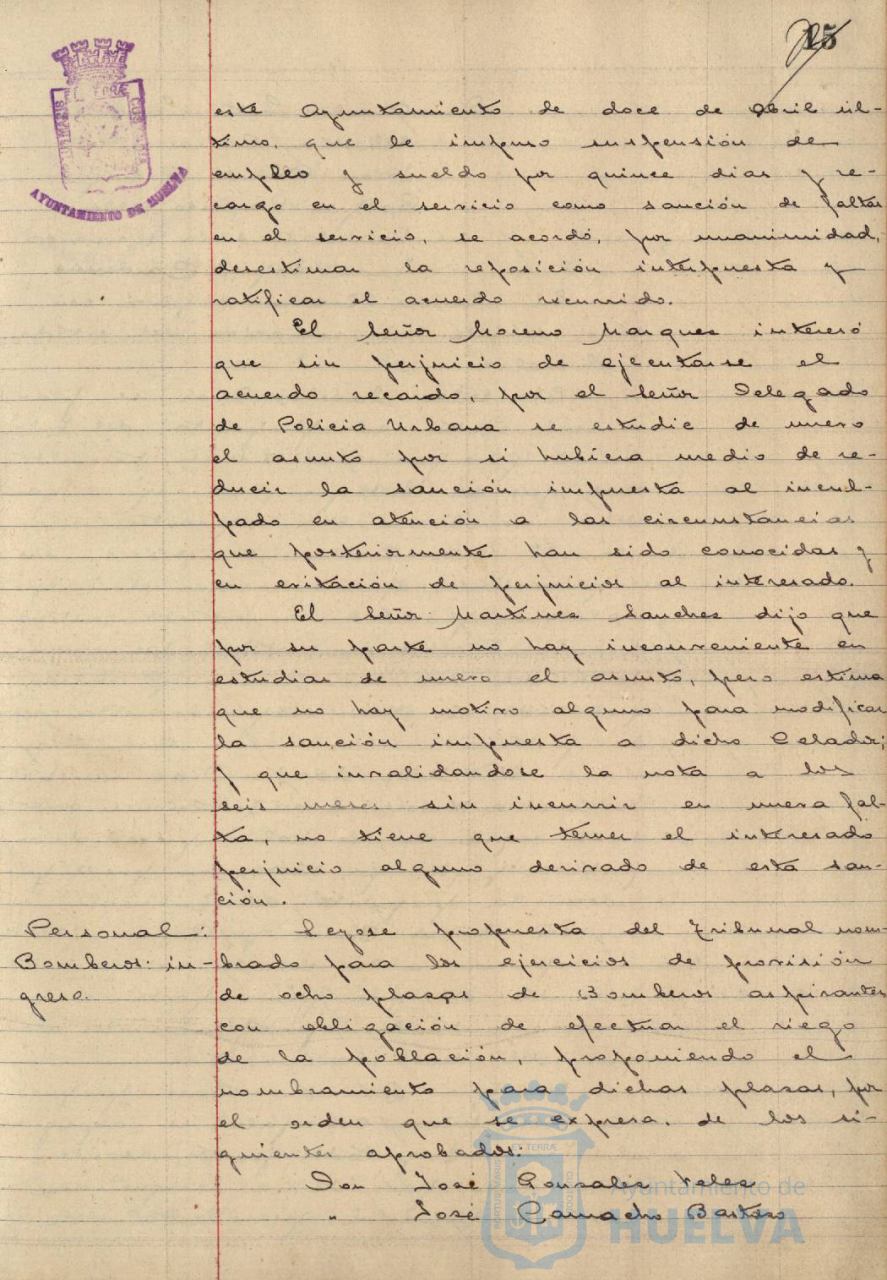 15
este Ayuntamiento de doce de abril úl-
timo, que le impuso suspensión de
empleo y sueldo por quince dias y re-
cargo en el servicio como sanción de faltas
en el servicio, se acordó, por unanimidad,
desestimar la reposición interpuesta y
ratificar el acuerdo recurrido.
El Señor Moreno Marquez interesó
que sin perjuicio de ejecutarse el
acuerdo recaido, por el Señor Delegado
de Policia Urbana se estudie de nuevo
el asunto por si hubiera medio de re-
ducir la sanción impuesta al incul-
pado en atención a las circunstancias
que posteriormente han sido conocidas y
en evitación de perjuicios al interesado.
El Señor Martinez Sanchez dijo que
por su parte no hay inconveniente en
estudiar de nuevo el asunto, pero estima
que no hay motivo alguno para modificar
la sanción impuesta a dicho Celador;
y que invalidandose la nota a los
seis meses sin incurrir en nueva fal-
ta, no tiene que temer el interesado
perjuicio alguno derivado de esta san-
ción.
Personal:
Bomberos: in-
greso.
Leyose propuesta del Tribunal nom-
brado para los ejercicios de provisión
de ocho plazas de Bomberos aspirantes
con obligación de efectuar el riego
de la población, proponiendo el
nombramiento para dichas plazas, por
el orden que se expresa, de los si-
guientes aprobados:
Don José Gonzalez Velez
" José Camacho
AYUNTAMIENTO DE HUELVA
Ayuntamiento de
HUELVA